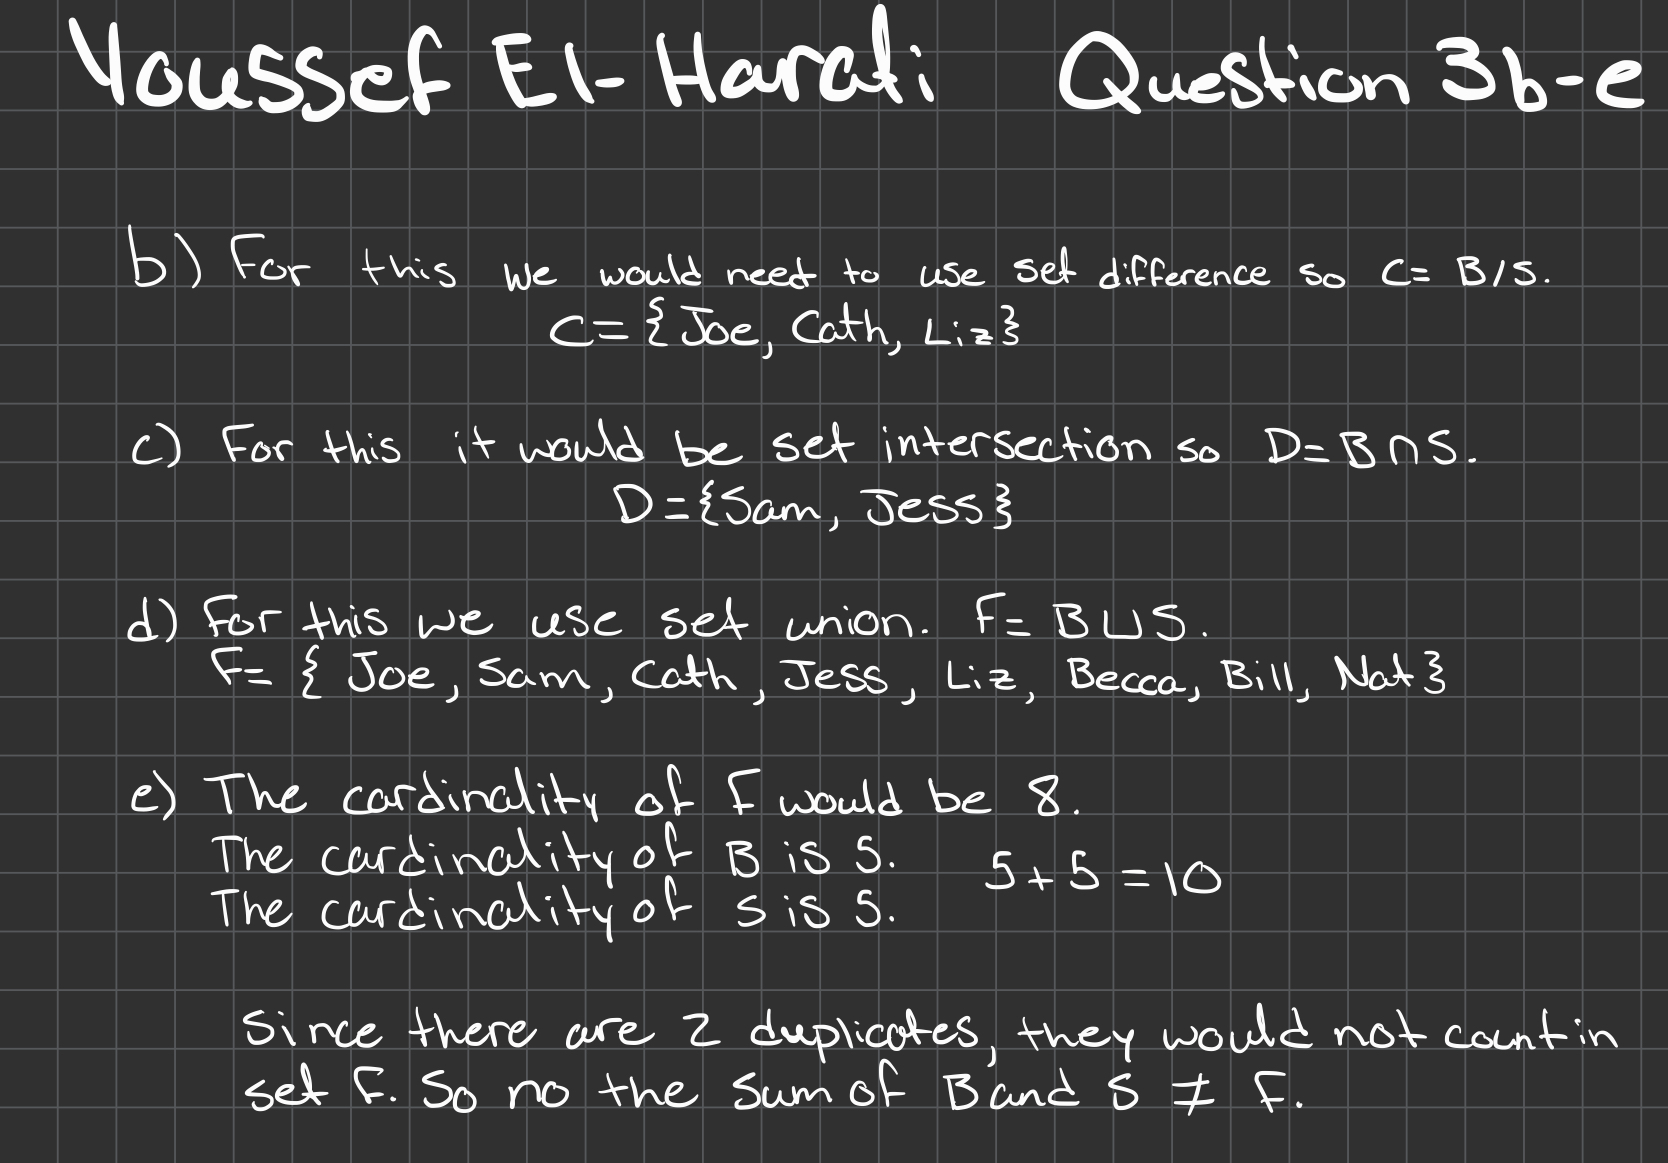 Youssef El-Harati Question 3b-e
b) For this we would need to use set difference so C= B/S.
C= {Joe, Cath, Liz}
c) For this it would be set intersection so D= B∩S.
D={Sam, Jess}
d) For this we use set union. F= B∪S.
F= { Joe, Sam, Cath, Jess, Liz, Becca, Bill, Nat}
e) The cardinality of F would be 8.
The cardinality of B is 5.
5+5=10
The cardinality of S is 5.
Since there are 2 duplicates, they would not count in
set F. So no the sum of B and S ≠ F.